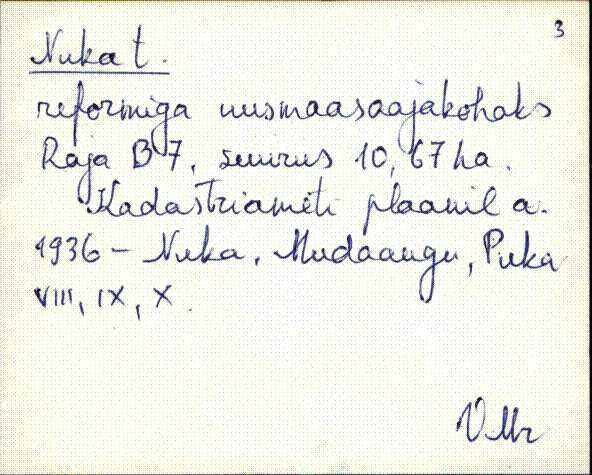 3
Nuka t.
reformiga uusmaasaajakohaks
Raja B 7, suurus 10,67 ha.
Kadastriameti plaanil a.
1936 – Nuka, Mudaaugu, Puka
VIII, IX, X.
VMr